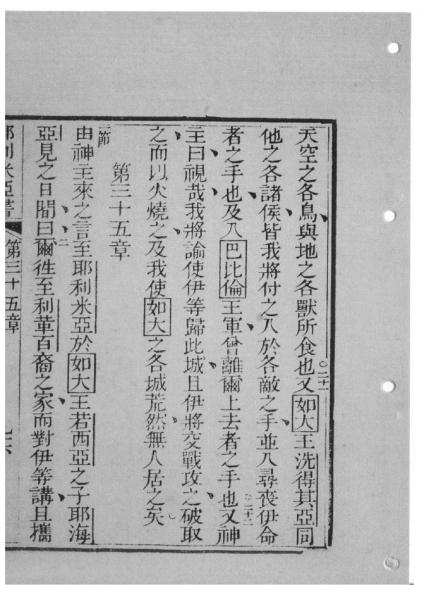 天空之各鳥與地之各獸所食也又如大王洗得其亞同
二十一
他之各諸侯皆我將付之入於各敵之手並入尋喪伊命
者之手也及入巴比倫王軍曾離爾上去者之手也又神
二十二
主曰視哉我將諭使伊等歸此城且伊將交戰攻之破取
之而以火燒之及我使如大之各城荒然無人居之矣
第三十五章
一節
由神主來之言至耶利米亞於如大王若西亞之子耶海
亞見之日間曰爾徃至利革百裔之家而對伊等講且攜
二
耶利米亞書
第三十五章